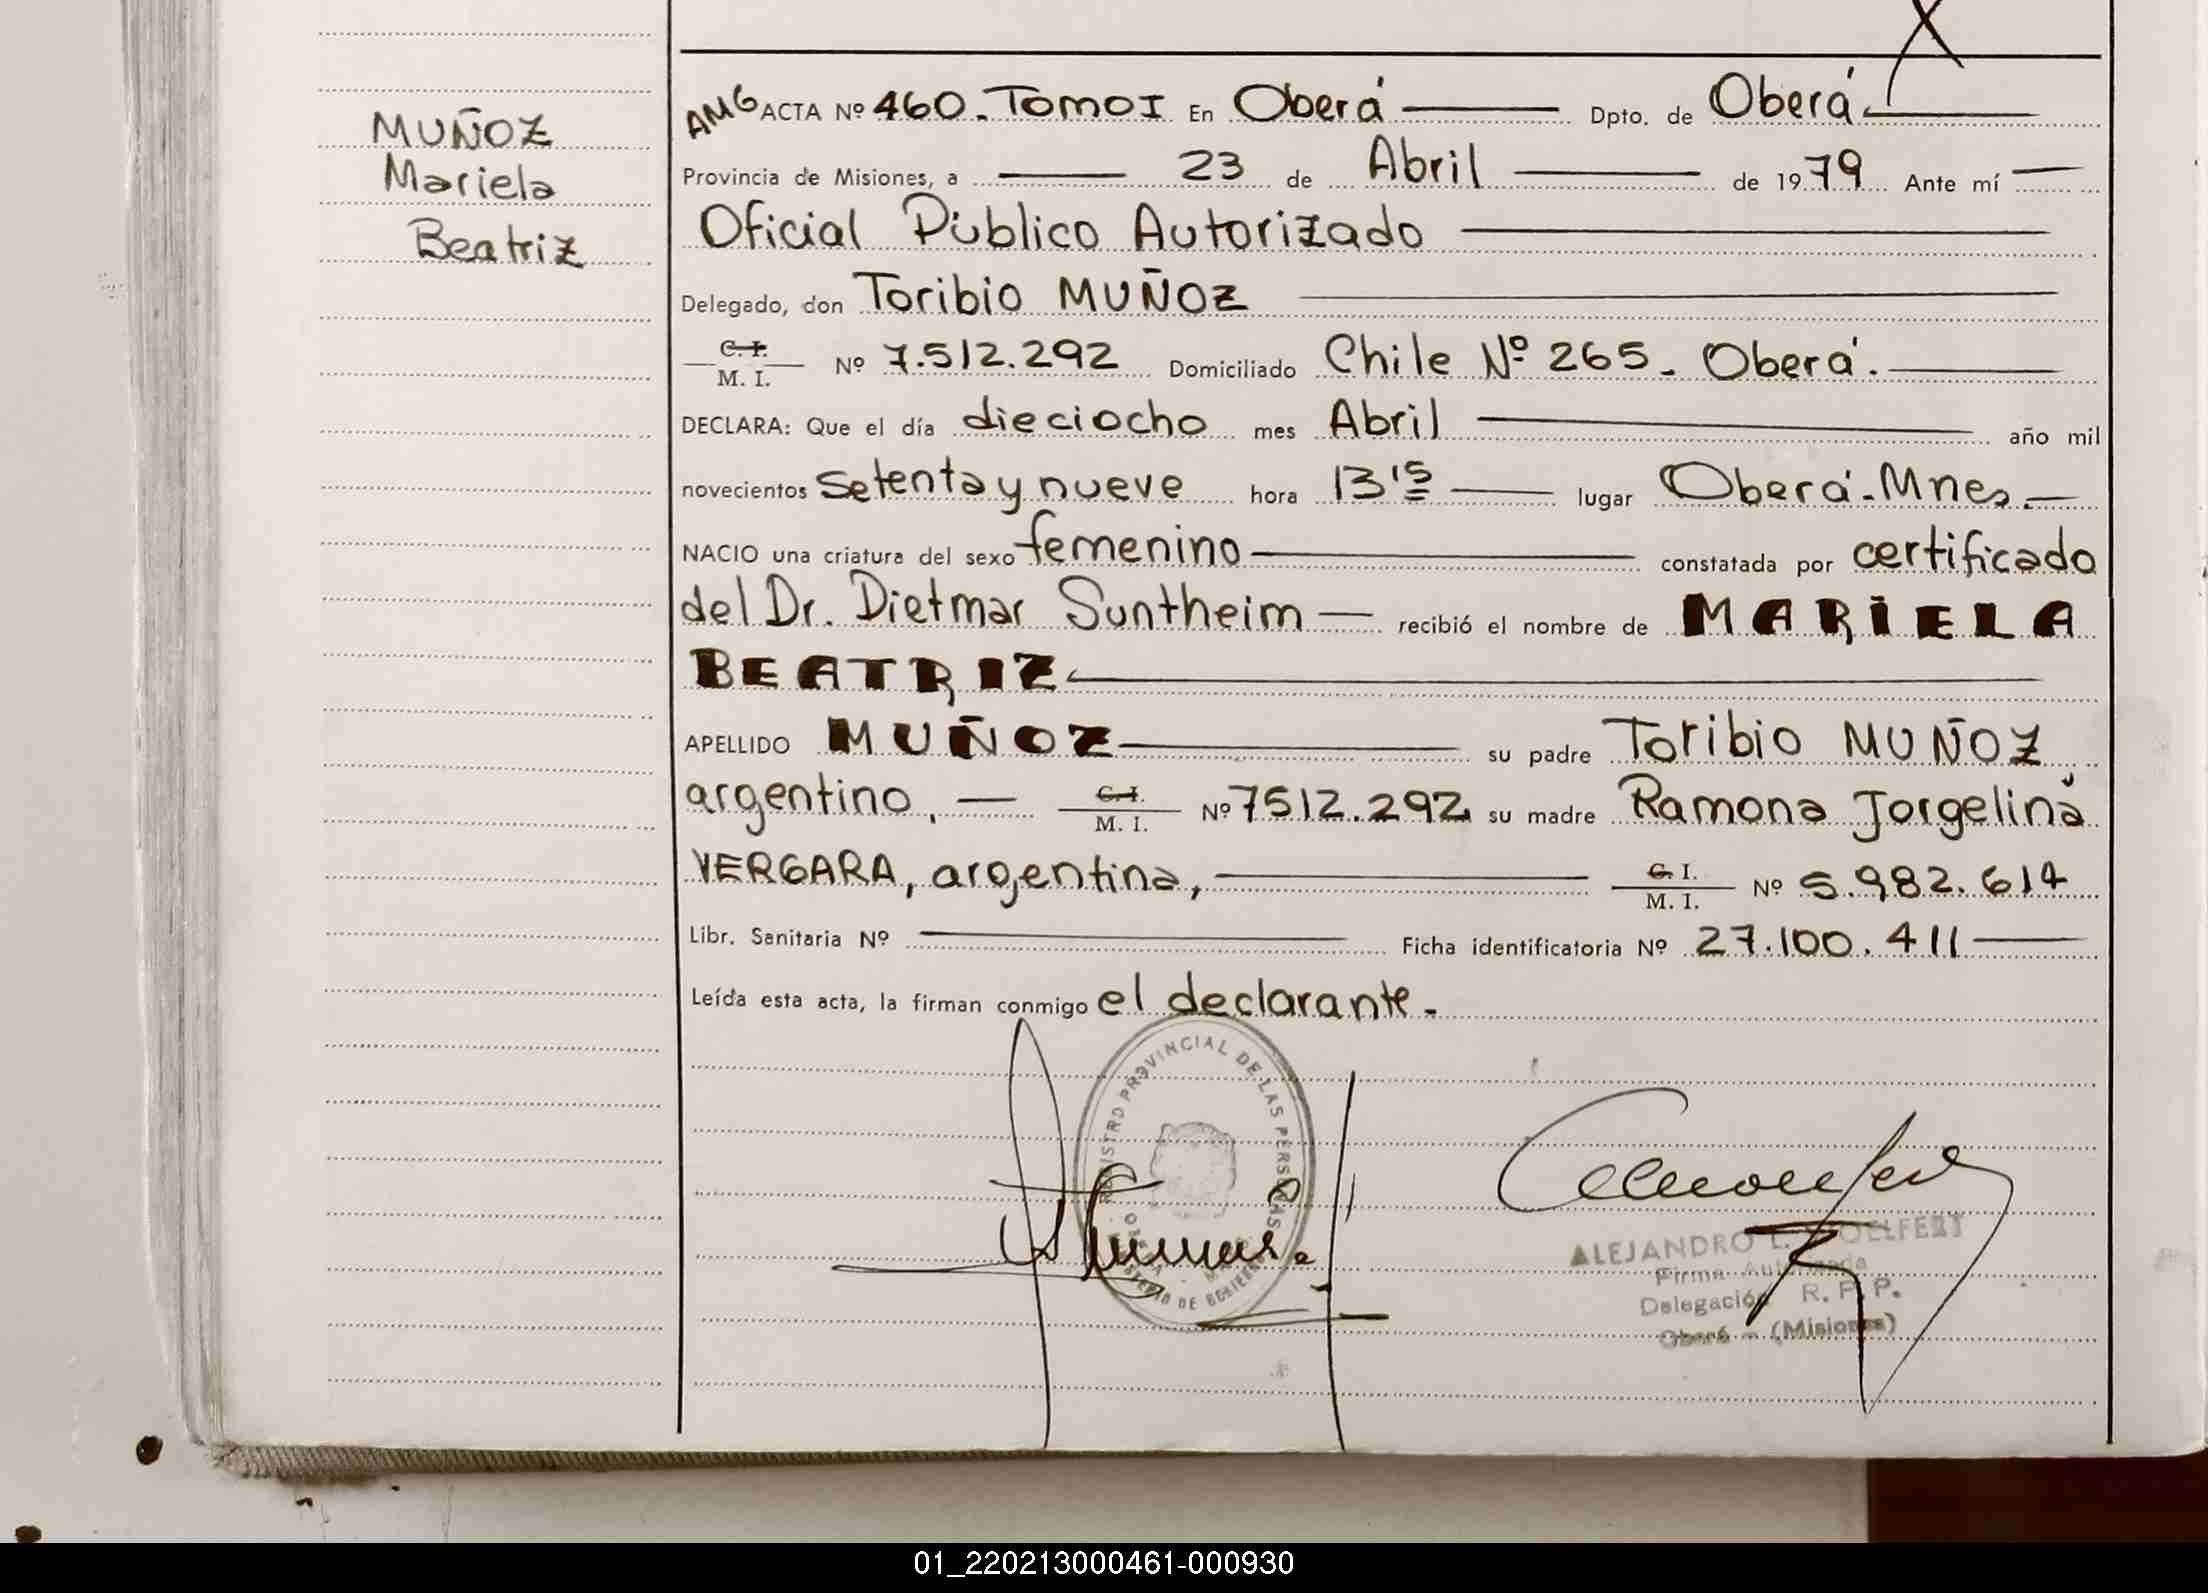 MUÑOZ
Mariela
Beatriz
AMG ACTA Nº 460. Tomo I En Oberá Dpto. de Oberá
Provincia de Misiones, a 23 de Abril de 1979 Ante mí
Oficial Público Autorizado
Delegado, don Toribio MUÑOZ
C. I.
M. I. Nº 7.512.292 Domiciliado Chile Nº 265. Oberá.
DECLARA: Que el día dieciocho mes Abril año mil
novecientos setenta y nueve hora 13 15 lugar Oberá-Mnes.
NACIO una criatura del sexo femenino constatada por certificado
del Dr. Dietmar Suntheim recibió el nombre de MARIELA
BEATRIZ
APELLIDO MUÑOZ su padre Toribio MUÑOZ
argentino, C. I.
M. I. Nº 7512.292 su madre Ramona Jorgelina
VERGARA, argentina, C. I.
M. I. Nº 5.982.614
Libr. Sanitaria Nº Ficha identificatoria Nº 27.100.411
Leída esta acta, la firman conmigo el declarante.
REGISTRO PROVINCIAL DE LAS PERSONAS
MINISTERIO DE GOBIERNO
ALEJANDRO
Firma Autorizada
Delegación R. P. P.
Oberá - (Misiones)
01_220213000461-000930